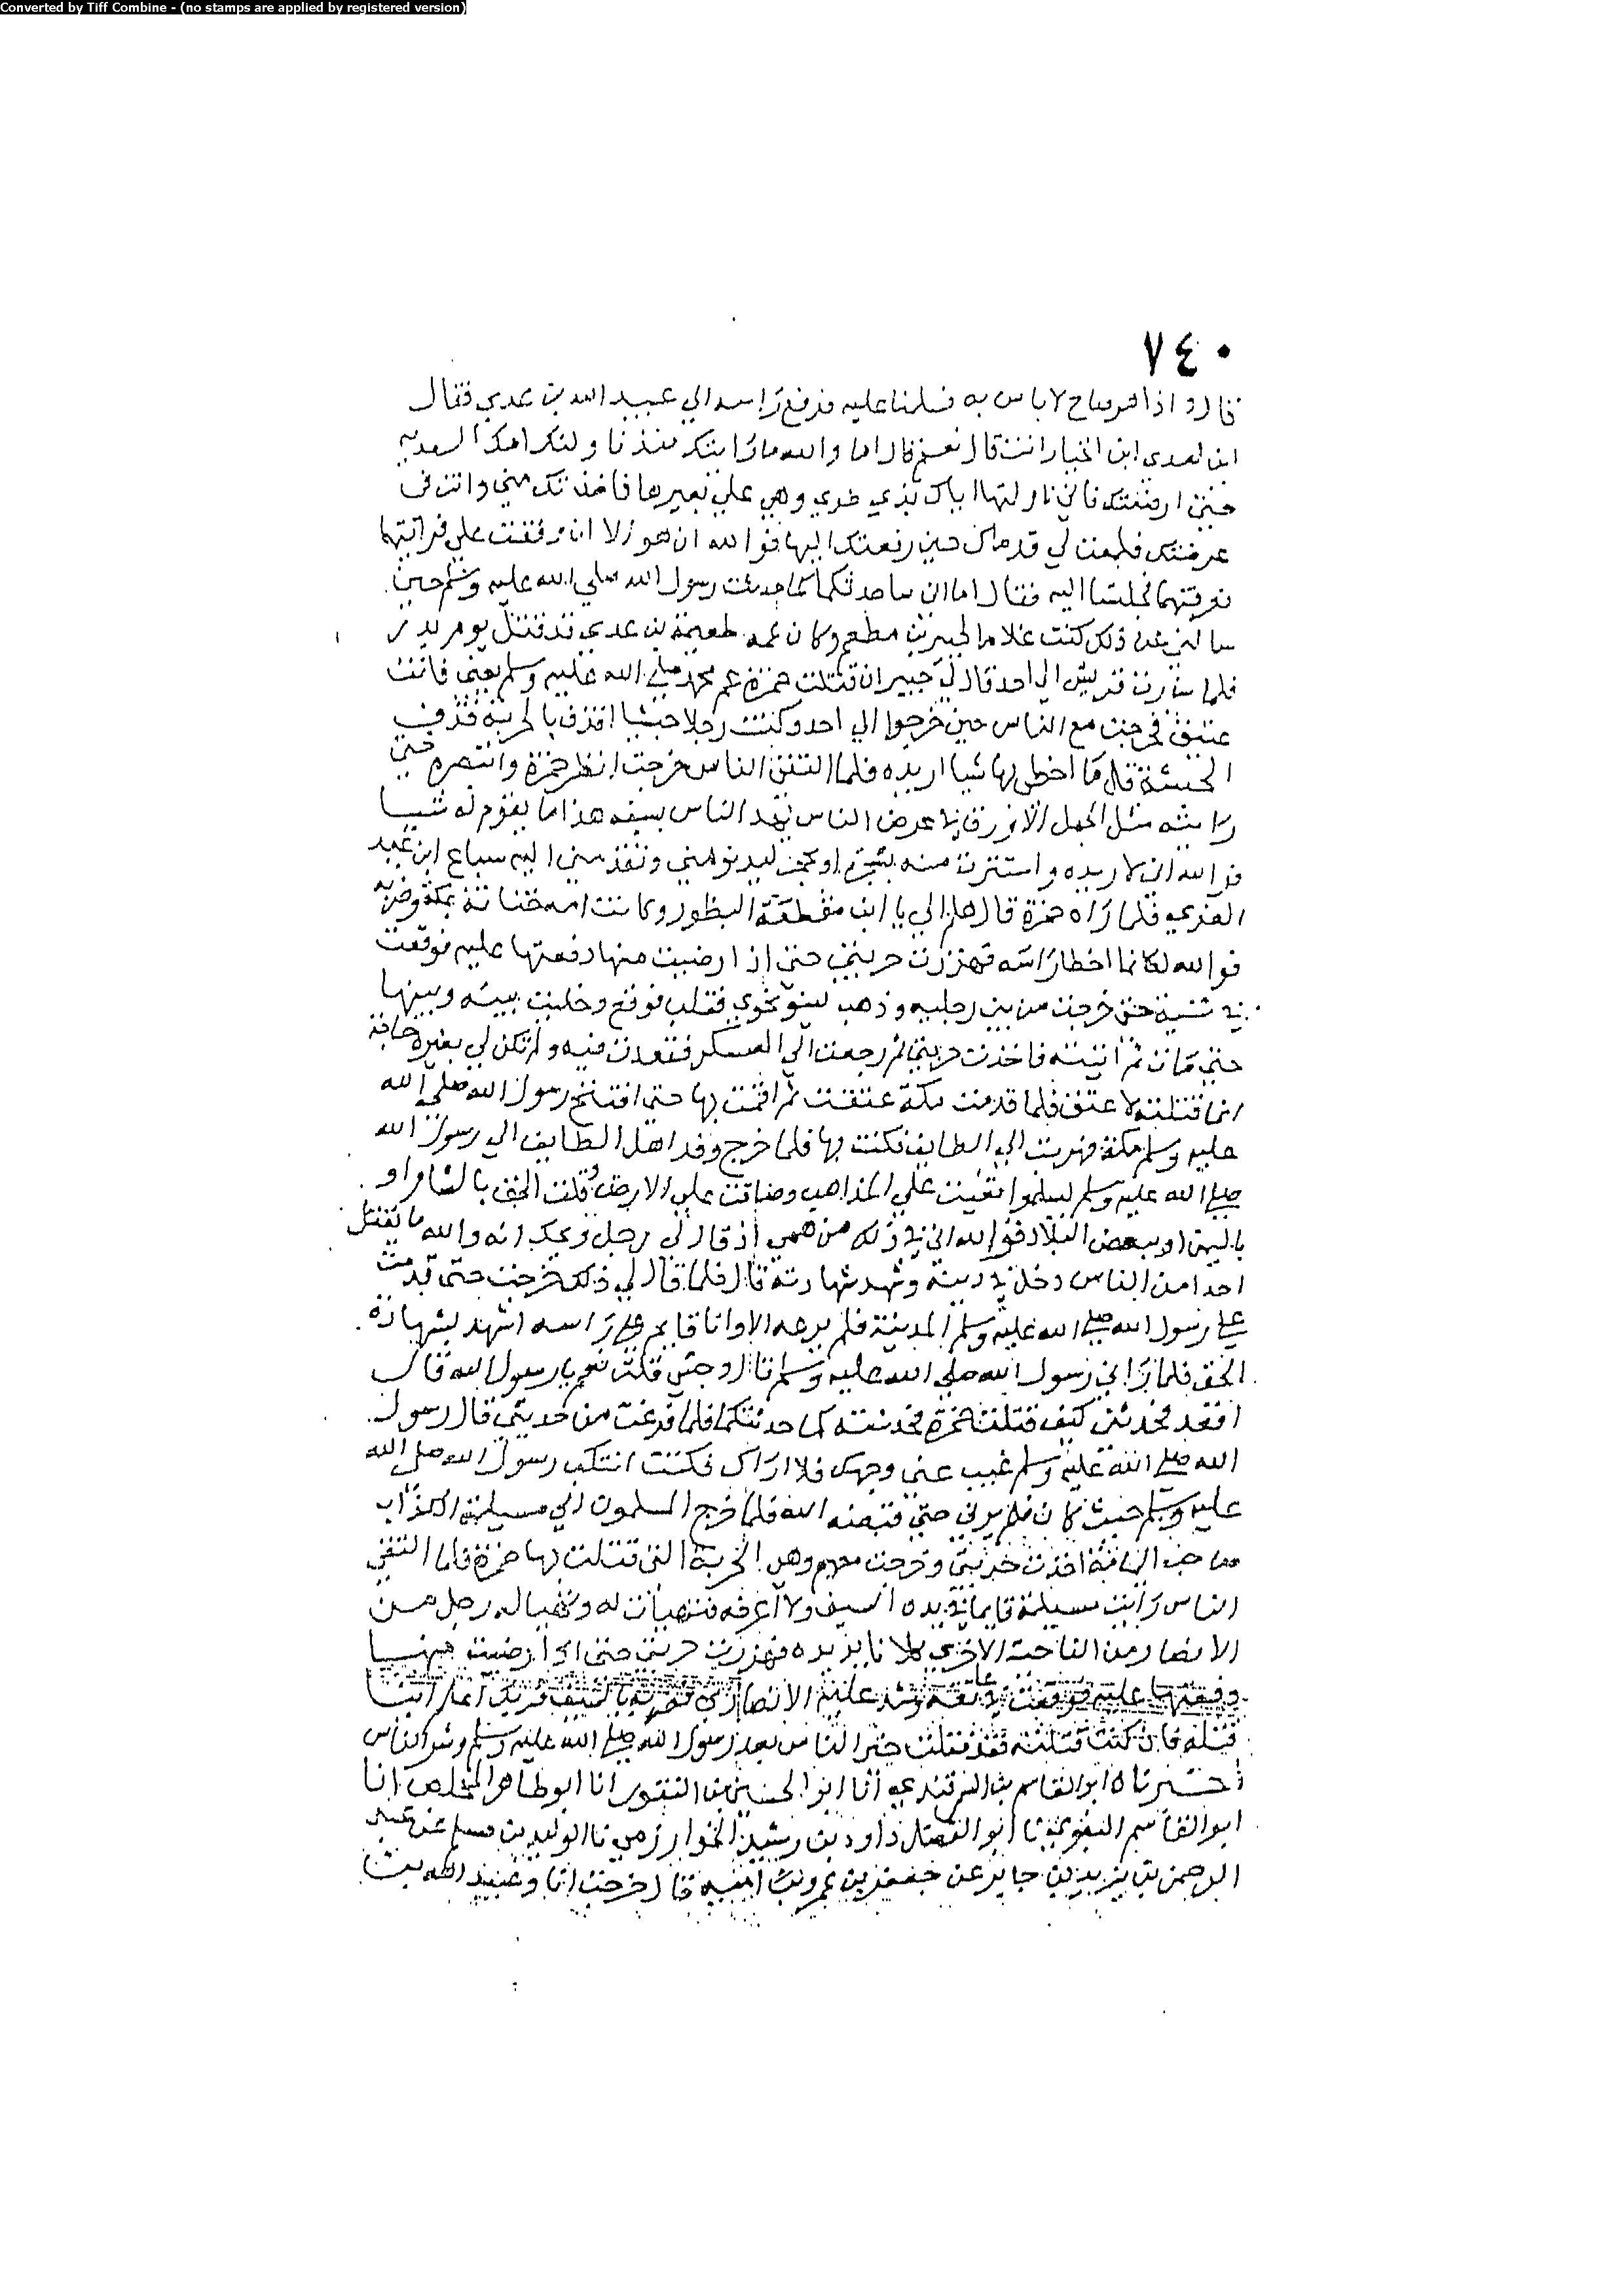 Converted by Tiff Combine - (no stamps are applied by registered version)
٧٤٠
قال واذا هو صاح لا باس به فسلمنا عليه فرفع راسه الي عبيد الله بن عدي فقال
ابن لعدي ابن الخيار انت قال نعم قال اما والله ما رايتك منذ ناولتك امك السعديه
حين ارضعتك فاني ناولتها اياك بذي طوي وهي علي بعيرها فاخذتك مني وانت في
عرضتك فلمعت لي قدماك حين رفعتك اليها فوالله ان هو الا ان وقفت علي فرايتها
فعرفتهما فجلسنا اليه فقال اما اني ساحدثكما كما حدثت رسول الله صلي الله عليه وسلم حين
سالني عن ذلك كنت غلاما لجبير بن مطعم وكان عمه طعيمة بن عدي قد قتل يوم بدر
فلما سارت قريش الي احد قال لي جبير ان قتلت حمزة عم محمد صلي الله عليه وسلم بعمي فانت
عتيق فخرجت مع الناس حين خرجوا الي احد وكنت رجلا حبشيا اقذف بالحربة قذف
الحبشة قل ما اخطي بها شيا اريده فلما التقي الناس خرجت انظر حمزة واتبصره حتي
رايته مثل الجمل الاورق في عرض الناس يهد الناس بسيفه هذا ما يقوم له شيا
فوالله اني لاريده واستترت منه بشجرة او بحجر ليدنو مني وتقدمني اليه سباع ابن عبد
العزي فلما راه حمزة قال هلم الي يا ابن مقطعة البظور وكانت امه ختانة بمكة فضربه
فوالله لكانما اخطا راسه فهززت حربتي حتي اذا رضيت منها دفعتها عليه فوقعت
في ثنية حتي خرجت من بين رجليه وذهب لينو نحوي فغلب فوقع وخليت بينه وبينها
حتي مات ثم اتيته فاخذت حربتي ثم رجعت الي العسكر فقعدت فيه ولم تكن لي بغيره حاجة
انما قتلته لاعتق فلما قدمت مكة عتقت ثم اقمت بها حتي افتتح رسول الله صلي الله
عليه وسلم مكة فهربت الي الطايف فكنت بها فلما خرج وفد اهل الطايف الي رسول الله
صلي الله عليه وسلم ليسلموا تعيت علي المذاهب وضاقت علي الارض وقلت الحق بالشام او
باليمن او ببعض البلاد فوالله اني في ذلك من همي اذ قال لي رجل ويحك انه والله ما يقتل
احدا من الناس دخل في دينه وشهد شهادته قال فلما قال لي ذلك خرجت حتي قدمت
علي رسول الله صلي الله عليه وسلم المدينة فلم يرعه الا وانا قايم علي راسه اشهد بشهادة
الحق فلما راني رسول الله صلي الله عليه وسلم قال وحشي قلت نعم يا رسول الله قال
اقعد فحدثني كيف قتلت حمزة فحدثته كما حدثتكما فلما فرغت من حديثي قال رسول
الله صلي الله عليه وسلم غيب عني وجهك فلا اراك فكنت اتنكب رسول الله صلي الله
عليه وسلم حيث كان فلم يرني حتي قبضه الله فلما خرج المسلمون الي مسيلمة الكذاب
صاحب اليمامة اخذت حربتي وخرجت معهم وهي الحربة التي قتلت بها حمزة فلما التقي
الناس رايت مسيلمة قايما في يده السيف ولا اعرفه فتهيات له وتهيا له رجل من
الانصار من الناحية الاخري كلانا يريده فهززت حربتي حتي اذا رضيت منها
دفعتها عليه فوقعت في عانته وشد عليه الانصاري فضربه بالسيف فربك اعلم اينا
قتله فان كنت قتلته فقد قتلت خير الناس بعد رسول الله صلي الله عليه وسلم وشر الناس
اخبرناه ابو القاسم بن السمرقندي انا ابو الحسين بن النقور انا ابو طاهر المخلص انا
ابو القاسم البغوي نا ابو الفضل داود بن رشيد الخوارزمي نا الوليد بن مسلم عن عبد
الرحمن بن يزيد بن جابر عن جعفر بن عمرو بن امية قال خرجت انا وعبيد الله بن